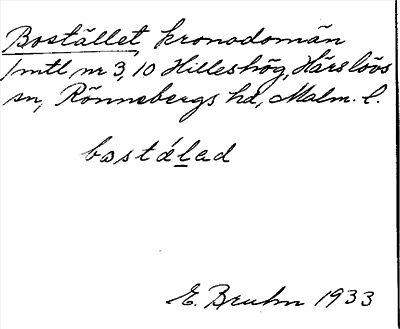 Bostället kronodomän
1 mtl nr 3, 10 Hilleshög, Härslövs
sn, Rönnebergs hd, Malm. l.
bostálad
E. Bruhn 1933